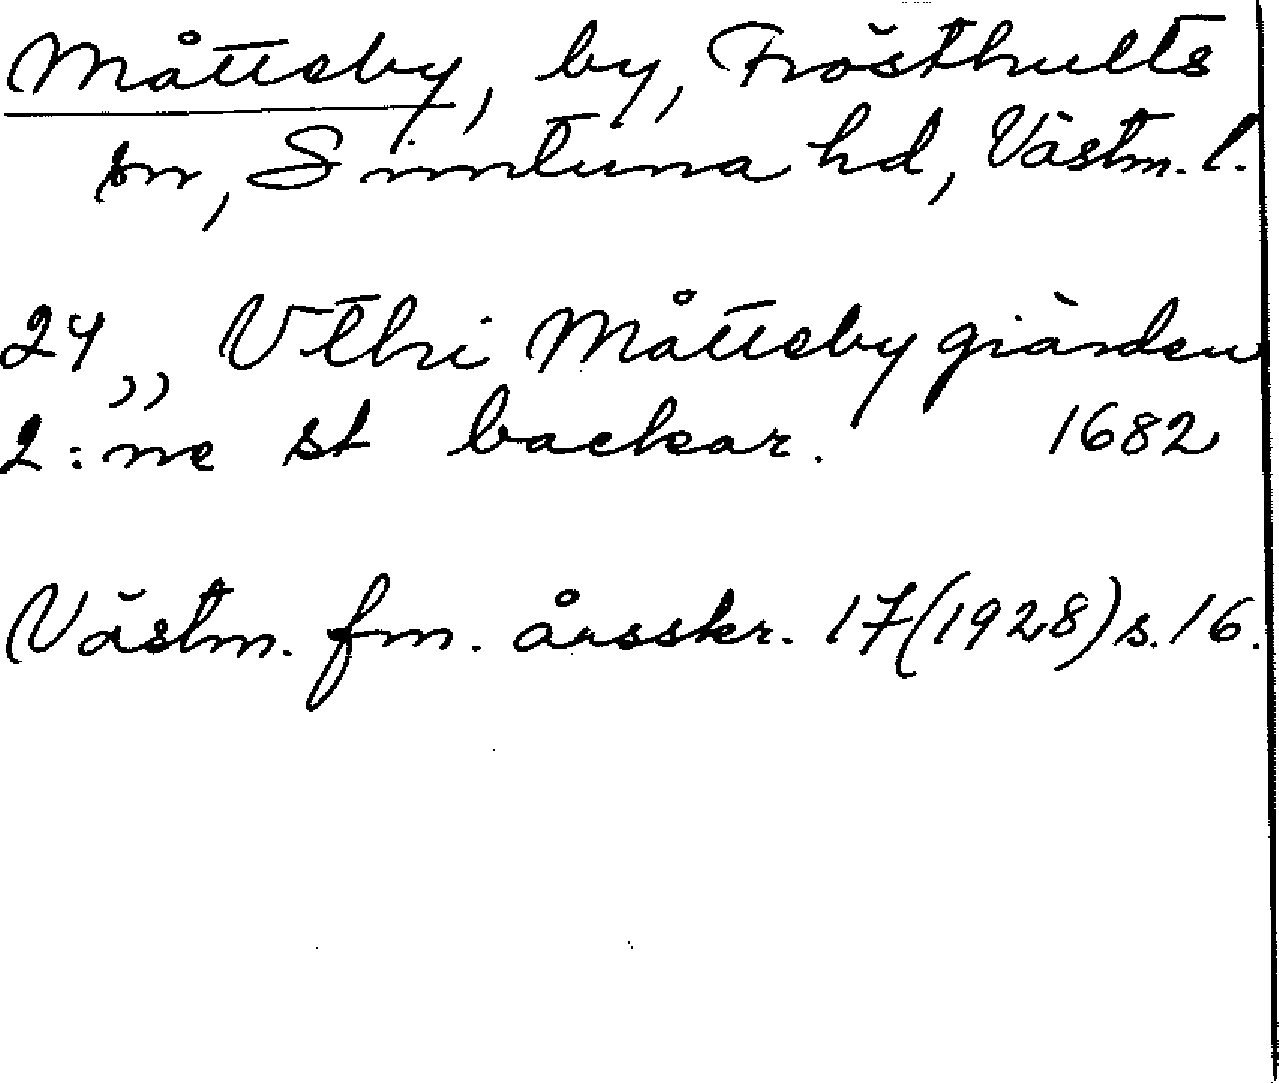 Måtteby, by, Frösthults
sn, Simtuna hd, Västm. l.
24 „ Uthi Måtteby giärden
2:ne st backar. 1682
Västm. fm. årsskr. 17 (1928) s. 16.